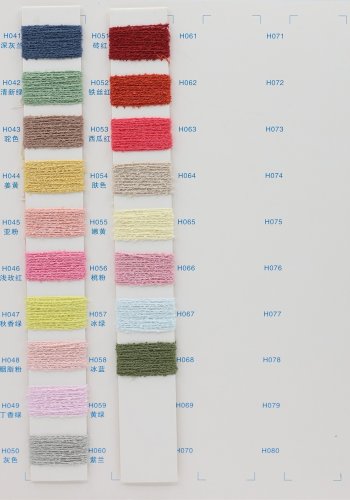 H041
深灰兰
H051
砖红
H061
H071
H042
清新绿
H052
铁丝红
H062
H072
H043
驼色
H053
西瓜红
H063
H073
H044
姜黄
H054
肤色
H064
H074
H045
亚粉
H055
嫩黄
H065
H075
H046
浅玫红
H056
桃粉
H066
H076
H047
秋香绿
H057
冰绿
H067
H077
H048
胭脂粉
H058
冰蓝
H068
H078
H049
丁香绿
H059
黄绿
H069
H079
H050
灰色
H060
紫兰
H070
H080